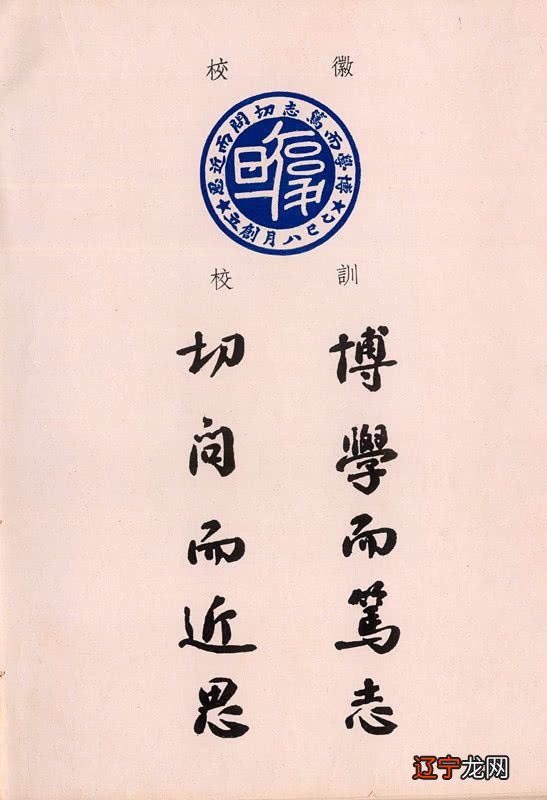 校徽
博學而篤志切問而近思
乙巳八月創立
復旦
校訓
博學而篤志
切問而近思
辽宁龙网